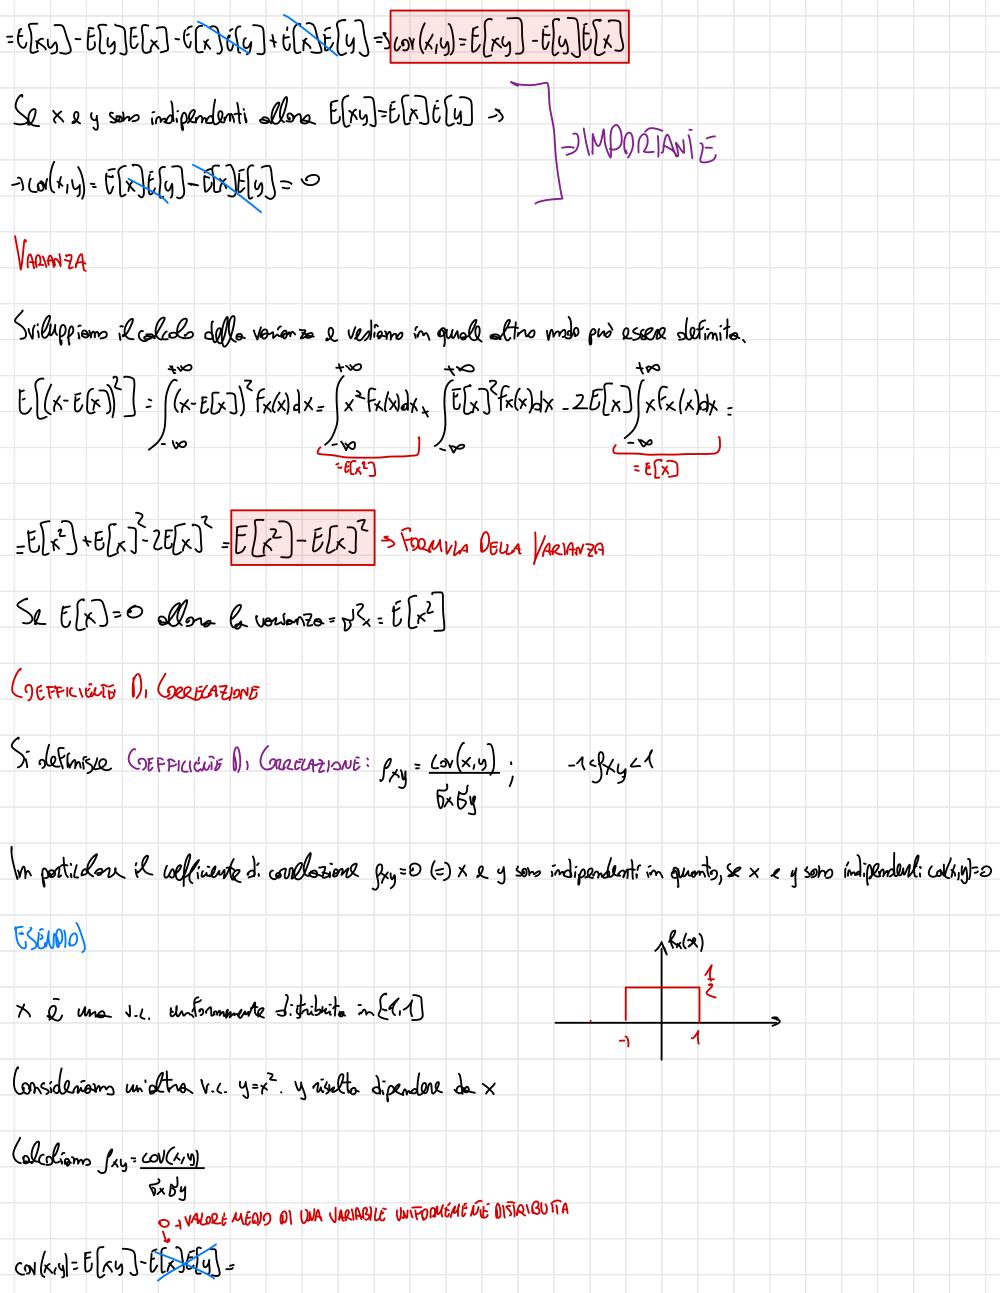 =E[xy]-E[y]E[x]-E[x]E[y]+E[x]E[y] => cov(x,y)=E[xy]-E[y]E[x]
Se x e y sono indipendenti allora E[xy]=E[x]E[y] →
→ IMPORTANTE
→ cov(x,y)= E[x]E[y]-E[x]E[y]=0
VARIANZA
Sviluppiamo il calcolo della varianza e vediamo in quale altro modo può essere definita.
E[(x-E[x])²] = ∫_{-∞}^{+∞} (x-E[x])² fx(x)dx = ∫_{-∞}^{+∞} x² fx(x)dx + ∫_{-∞}^{+∞} E[x]² fx(x)dx - 2E[x] ∫_{-∞}^{+∞} x fx(x)dx =
=E[x²]
=E[x]
=E[x²]+E[x]²-2E[x]² = E[x²]-E[x]² → FORMULA DELLA VARIANZA
Se E[x]=0 allora la varianza = σ²x = E[x²]
COEFFICIENTE DI CORRELAZIONE
Si definisce COEFFICIENTE DI CORRELAZIONE: ρxy = cov(x,y)/σxσy ; -1<ρxy<1
In particolare il coefficiente di correlazione ρxy=0 (=) x e y sono indipendenti in quanto, se x e y sono indipendenti cov(x,y)=0
ESEMPIO)
fx(x)
1/2
x è una v.c. uniformemente distribuita in [-1,1]
-1 1
Consideriamo un'altra v.c. y=x². y risulta dipendere da x
Calcoliamo ρxy = cov(x,y)/σxσy
0 → VALORE MEDIO DI UNA VARIABILE UNIFORMEMENTE DISTRIBUITA
cov(x,y)= E[xy]-E[x]E[y] =